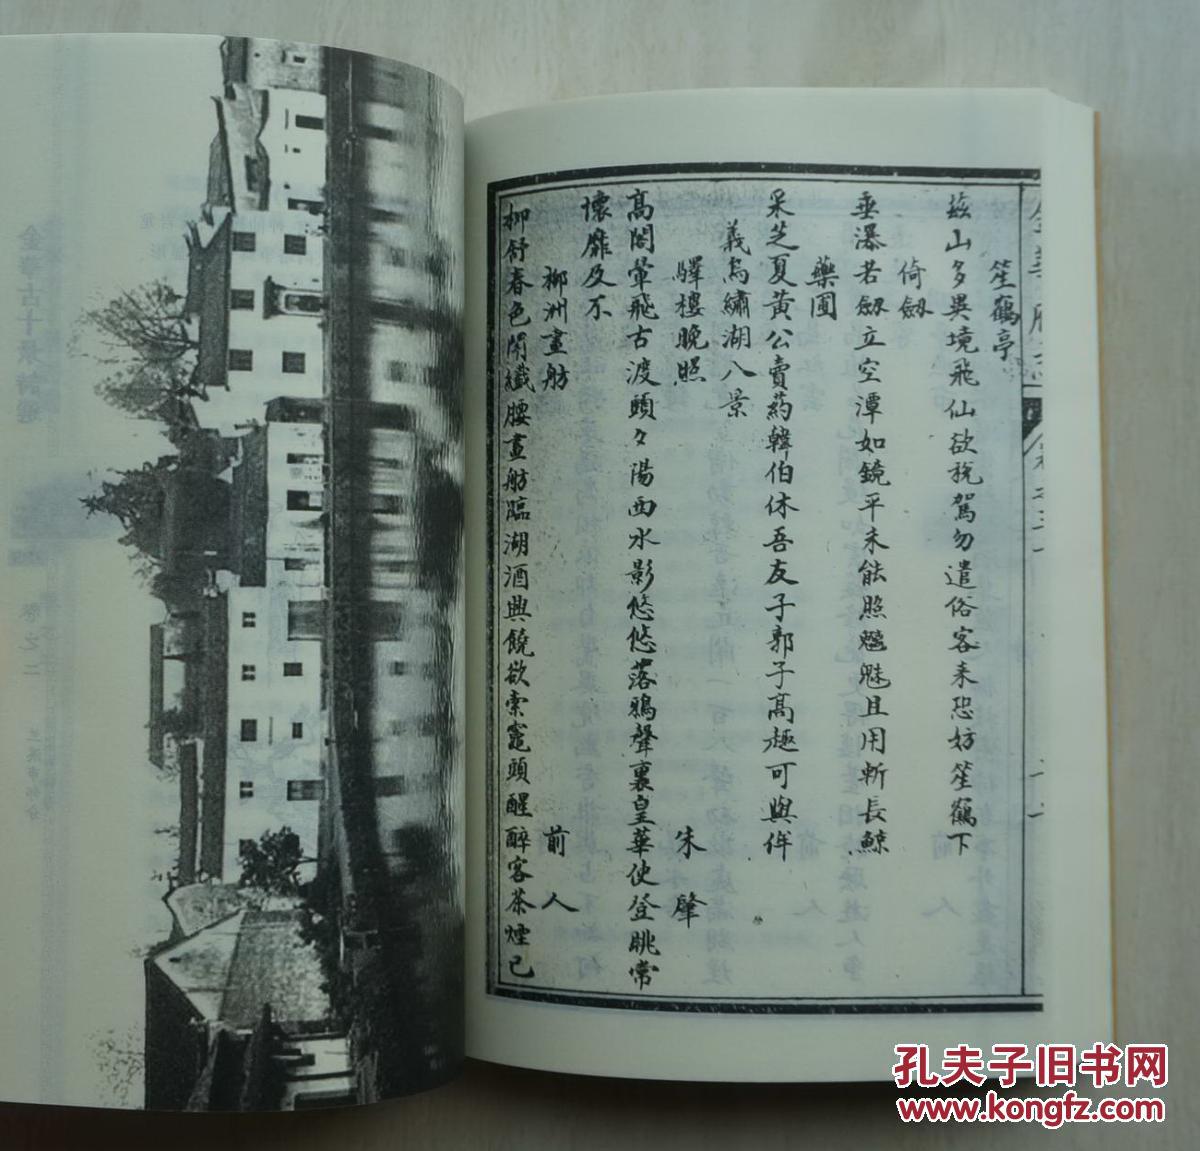 笙鶴亭
茲山多異境飛仙欲税駕勿遣俗客来恐妨笙鶴下
倚劔
垂瀑若劔立空潭如鏡平未能照魑魅且用斬長鯨
藥圃
采芝夏黄公賣药韓伯休吾友子郭子高趣可與侔
義烏繡湖八景
驛樓晚照
朱肇
高閣翬飛古渡頭夕陽西水影悠悠落鴉聲裏皇華使登眺常
懷靡及不
柳洲畫舫
前人
柳舒春色閗纖腰畫舫臨湖酒興饒欲索竈頭醒醉客茶煙已
卷之二
孔夫子旧书网
www.kongfz.com